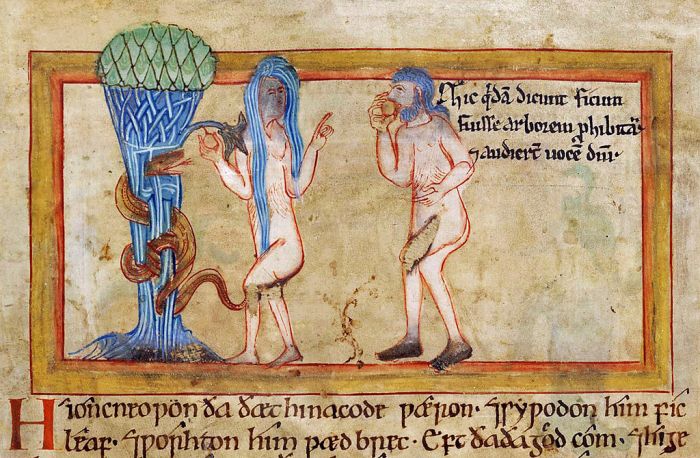 Hic qͥdā dicunt ficum
fuisse arborem ꝓhibitā
⁊ audier̄t uocē dn̄i·
Hi oncneoƿon ða ðæt hi nacode ƿæron· ⁊ syƿodon him fic
leaf· ⁊ ƿorhton him ƿædbrec· Eft ðaða god com· ⁊ hi ge